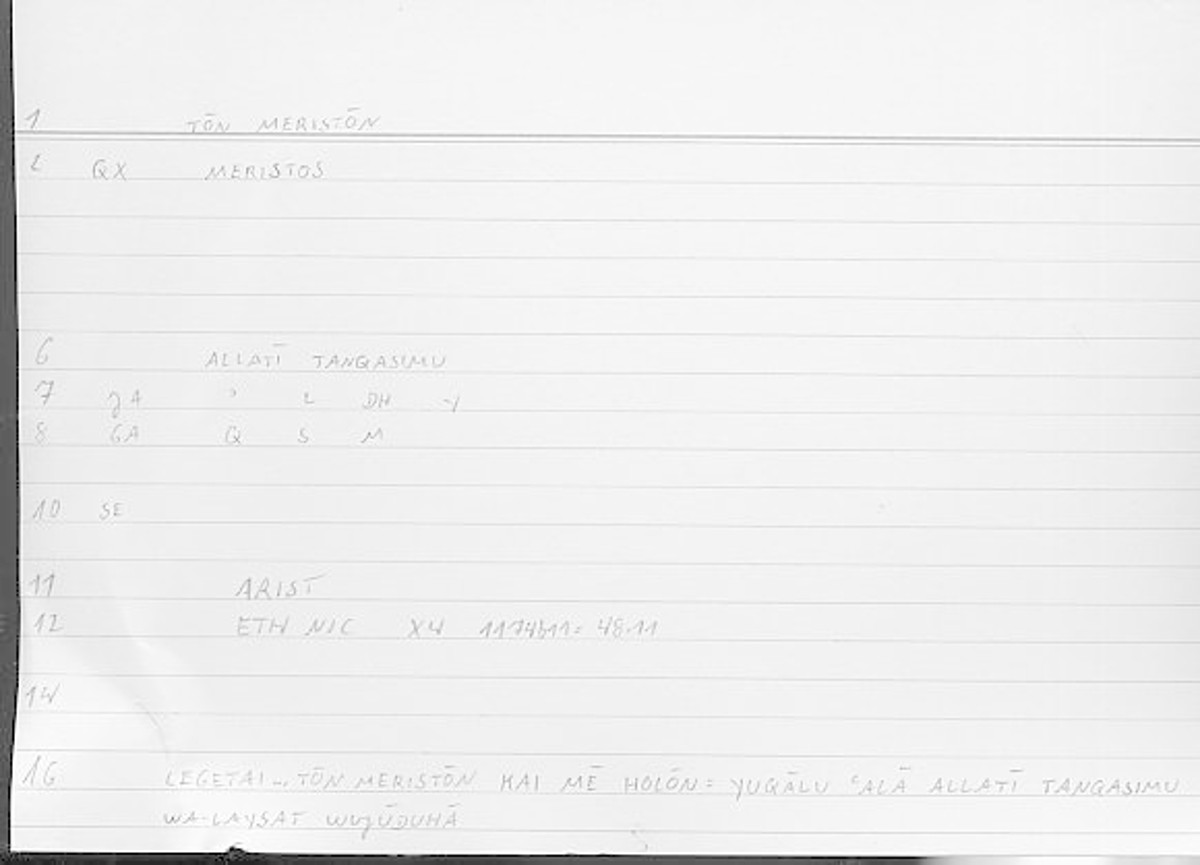 1 TŌN MERISTŌN
2 QX MERISTOS
6 ALLATĪ TANQASIMU
7 ʾ L DH Y
8 GA Q S M
10 SE
11 ARIST
12 ETH NIC X4 1174b11= 48.11
14
16 LEGETAI... TŌN MERISTŌN KAI MĒ HOLŌN = YUQĀLU ʿALĀ ALLATĪ TANQASIMU
WA-LAYSAT WUJŪDUHĀ